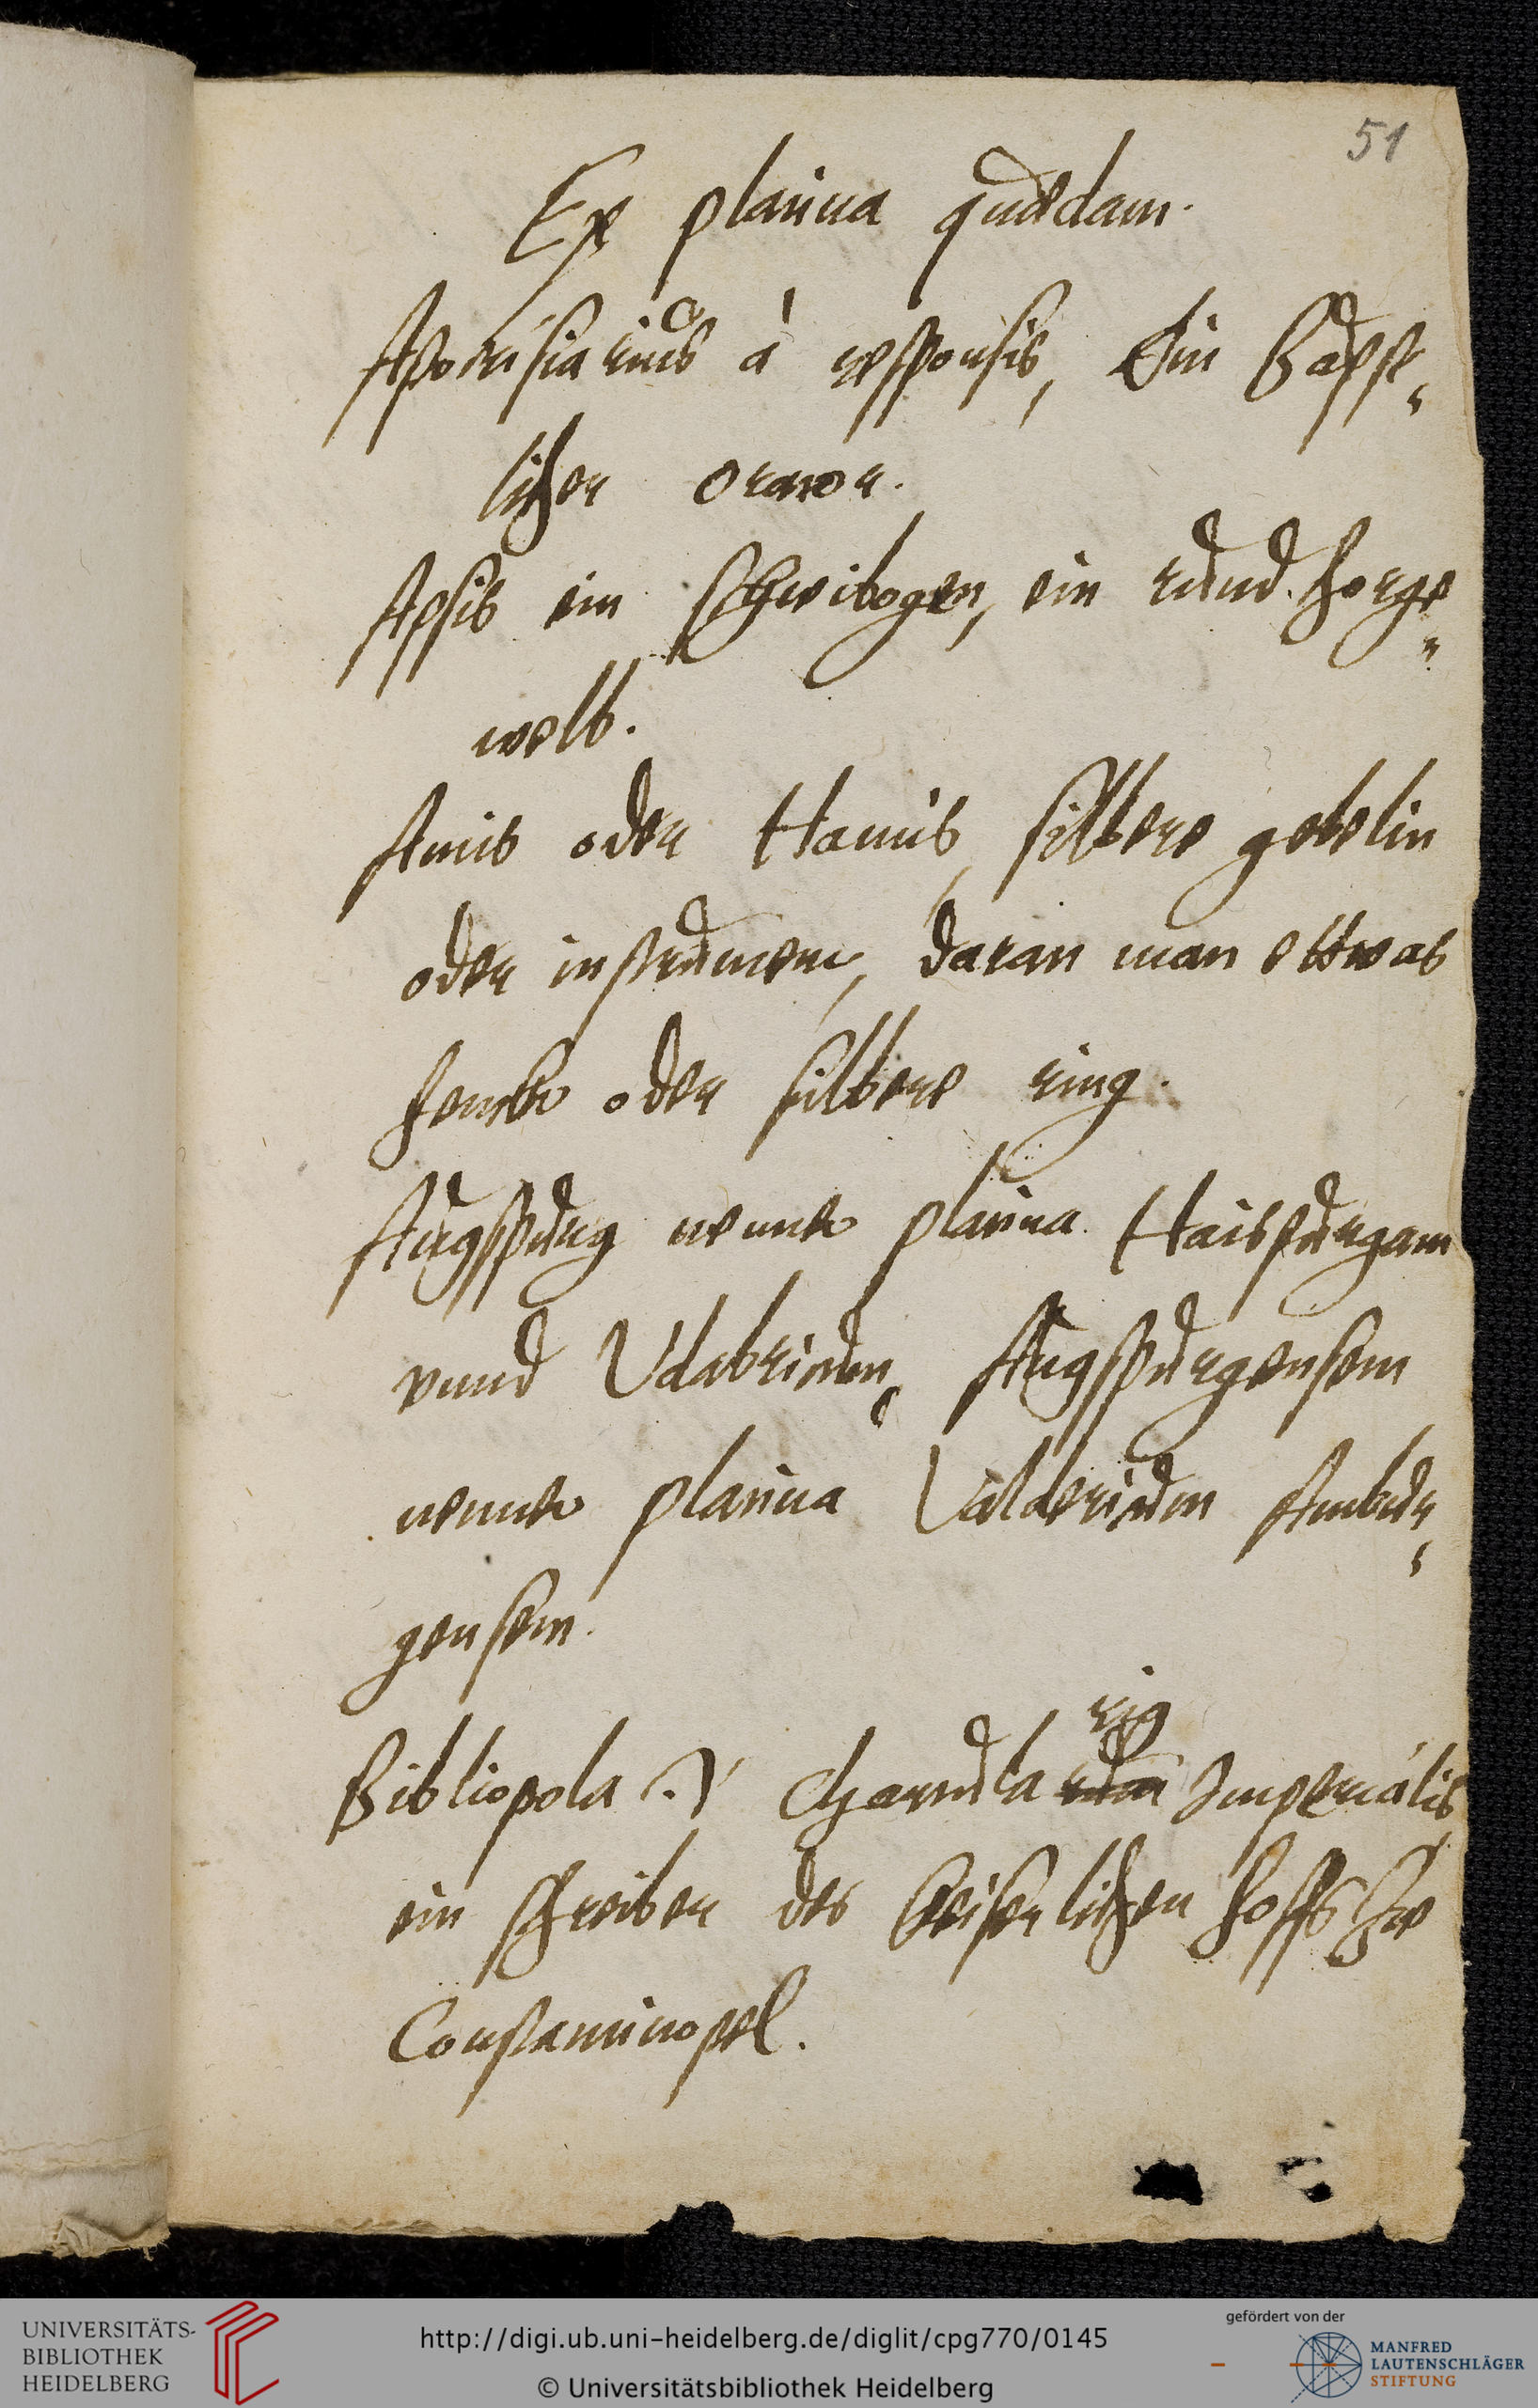 51
Ex platina quaedam.
Apocrisiarius à responsis, Ein Bäpst„
licher orator.
Apsis ein Schwibogen, ein rund chorge„
welb.
Amis oder Hamis, silbere gebelin
oder instrument, daran man ettwas
henckt oder silbere ring.
Augspurg nennt platina Haispurgam
vnnd Vdalricum Augspurgensem
nennt platina Valdericum Ambur„
gensem.
Bibliopola .i. Chartula rig Imperialis
ein schreiber des keiserlichen hoffs Zue
Constantinopel.
UNIVERSITÄTS-
BIBLIOTHEK
HEIDELBERG
http://digi.ub.uni-heidelberg.de/diglit/cpg770/0145
© Universitätsbibliothek Heidelberg
gefördert von der
MANFRED
LAUTENSCHLÄGER
STIFTUNG